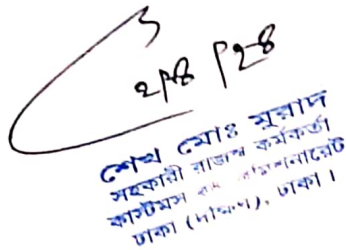 ২৮/৮/২৪
শেখ মোঃ মুরাদ
সহকারী রাজস্ব কর্মকর্তা
কাস্টমস কমিশনারেট
ঢাকা (দক্ষিণ), ঢাকা।